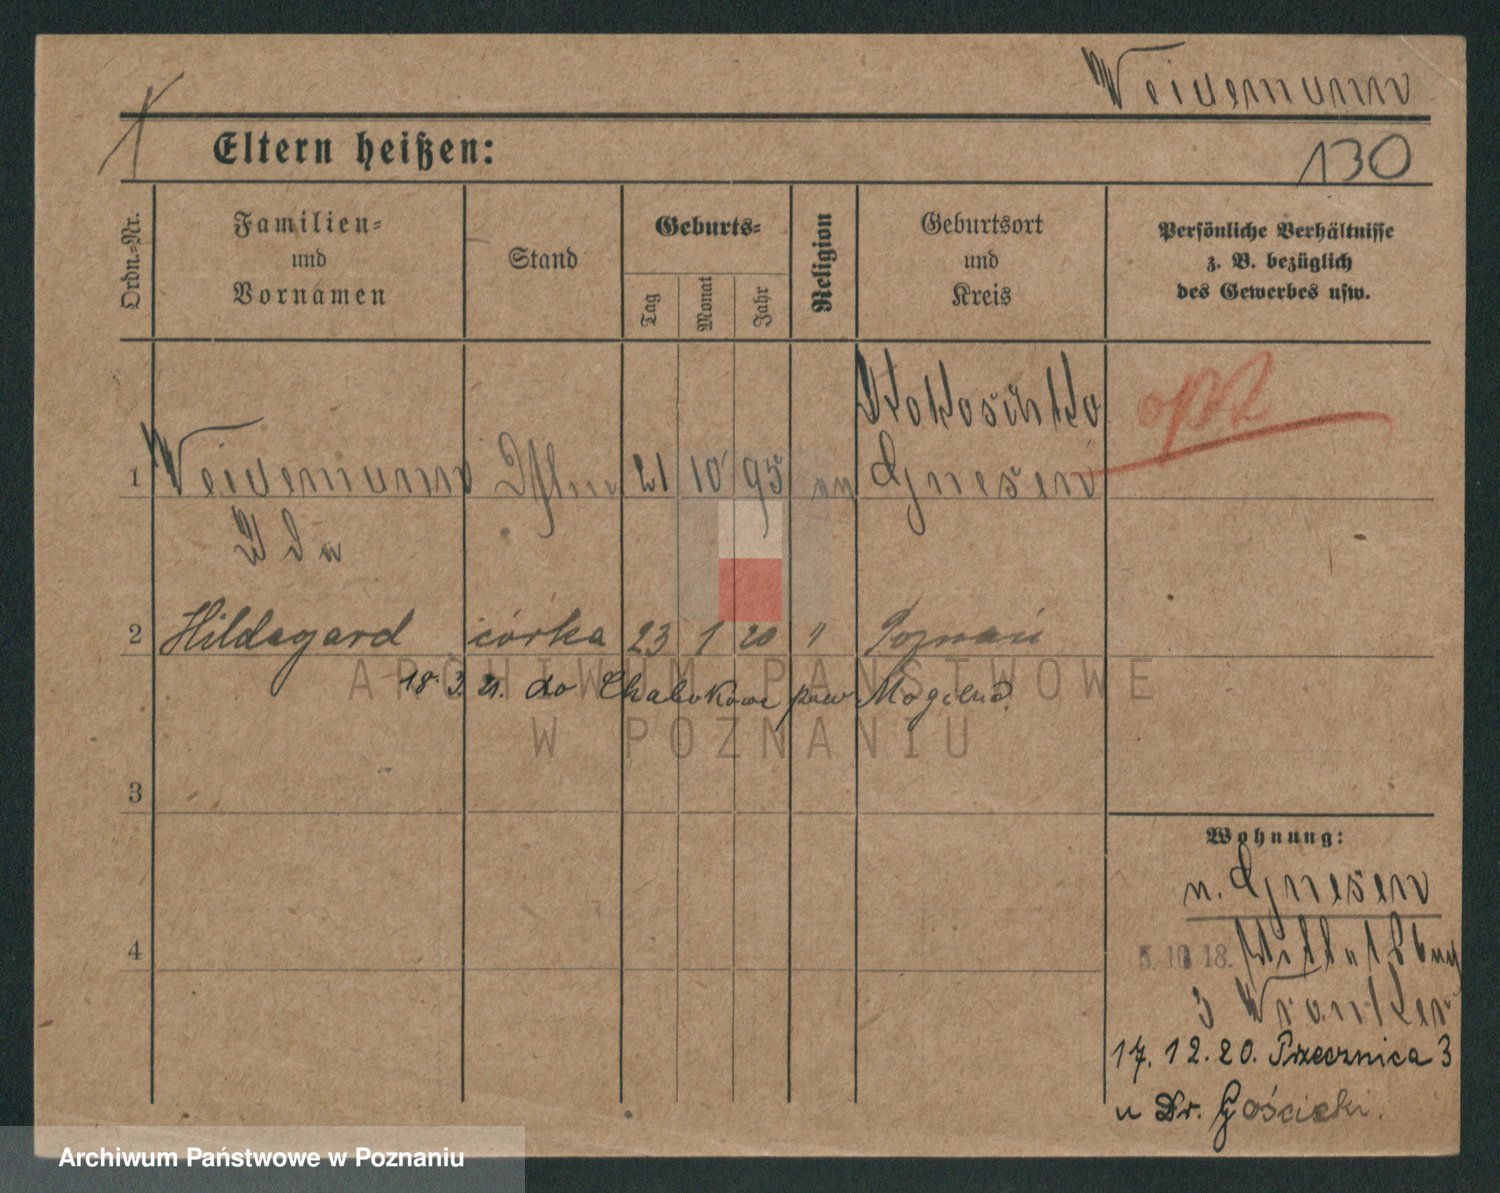 Weidemann
Eltern heißen:
130
Ordn.=Nr.
Familien=
und
Vornamen
Stand
Geburts=
Tag
Monat
Jahr
Religion
Geburtsort
und
Kreis
Persönliche Verhältnisse
z. B. bezüglich
des Gewerbes usw.
1
Weidemann
21 10 95
Gnesen
Ida
2 Hildegard córka 23 1 20 " Poznań
18. 3. 21. do pow Mogilno.
3
4
Wohnung:
n. Gnesen
5. 10 18.
3
17. 12. 20. Przecznica 3
u Dr. Gościcki.
ARCHIWUM PAŃSTWOWE
W POZNANIU
Archiwum Państwowe w Poznaniu